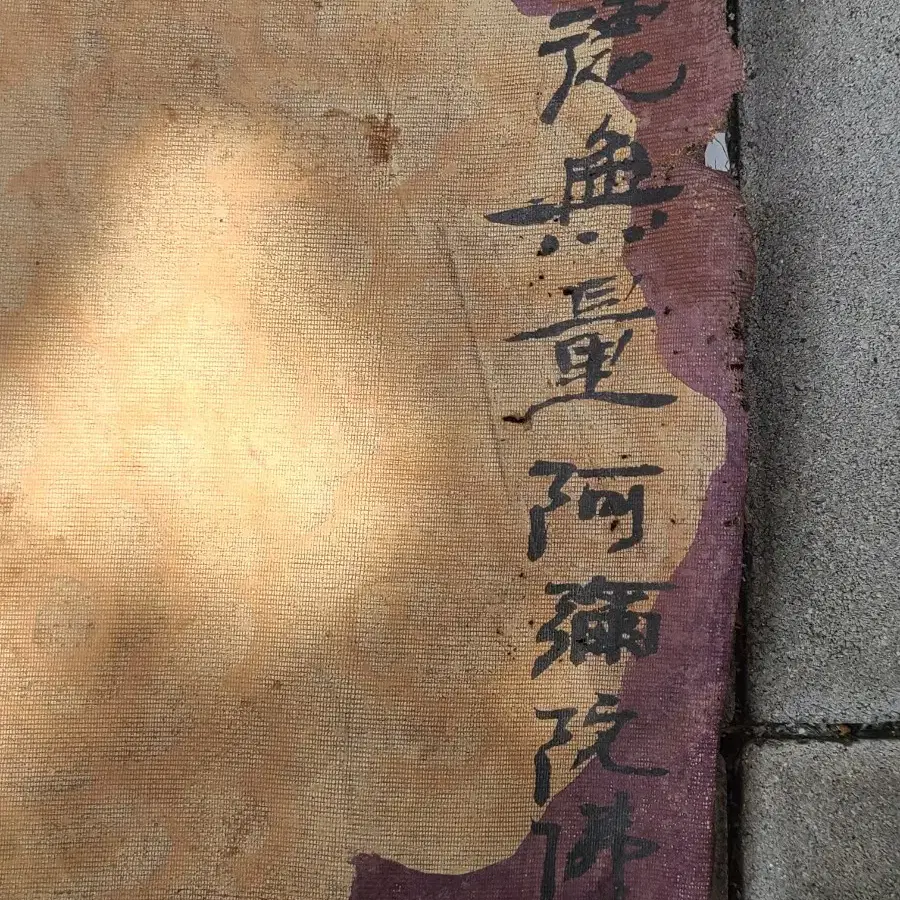 無量阿彌陀佛